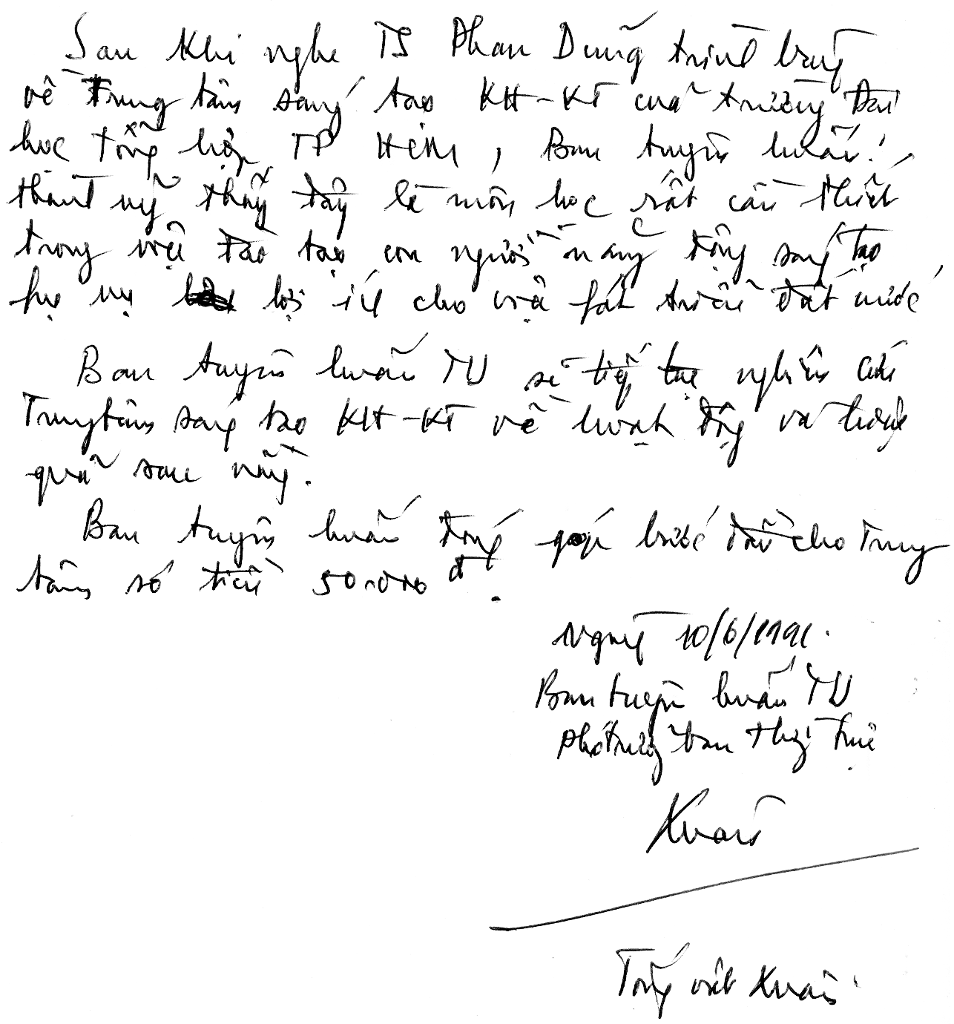 Sau khi nghe TS Phan Dũng trình bày
về Trung tâm sáng tạo KH-KT của trường Đại
học tổng hợp TP HCM, Ban tuyên huấn
thành uỷ thấy đây là môn học rất cần thiết
trong việc đào tạo con người năng động sáng tạo
lợi ích cho việc phát triển đất nước
Ban tuyên huấn TU sẽ tiếp tục nghiên cứu
Trung tâm sáng tạo KH-KT về hoạt động và
quả sau này.
Ban tuyên huấn đóng góp bước đầu cho Trung
tâm số tiền 50.000 đ.
Ngày 10/6/1991.
Ban tuyên huấn TU
Phó trưởng ban thường trực
Xuân
Tống Viết Xuân